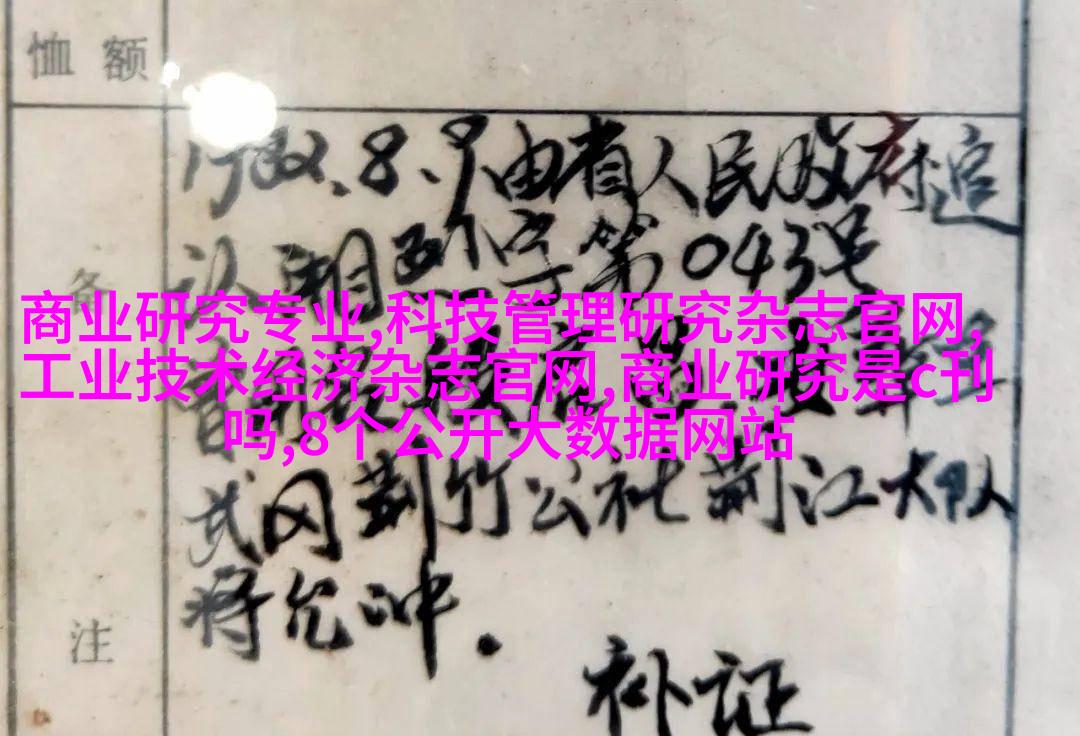 恤额
1982.8.9由省人民政府追
认 湘烈字第043号
备
商业研究专业,科技管理研究杂志官网,
工业技术经济杂志官网,商业研究是c刊
吗,8个公开大数据网站
武冈荆竹公社荆江大队
蒋允冲.
注
补证